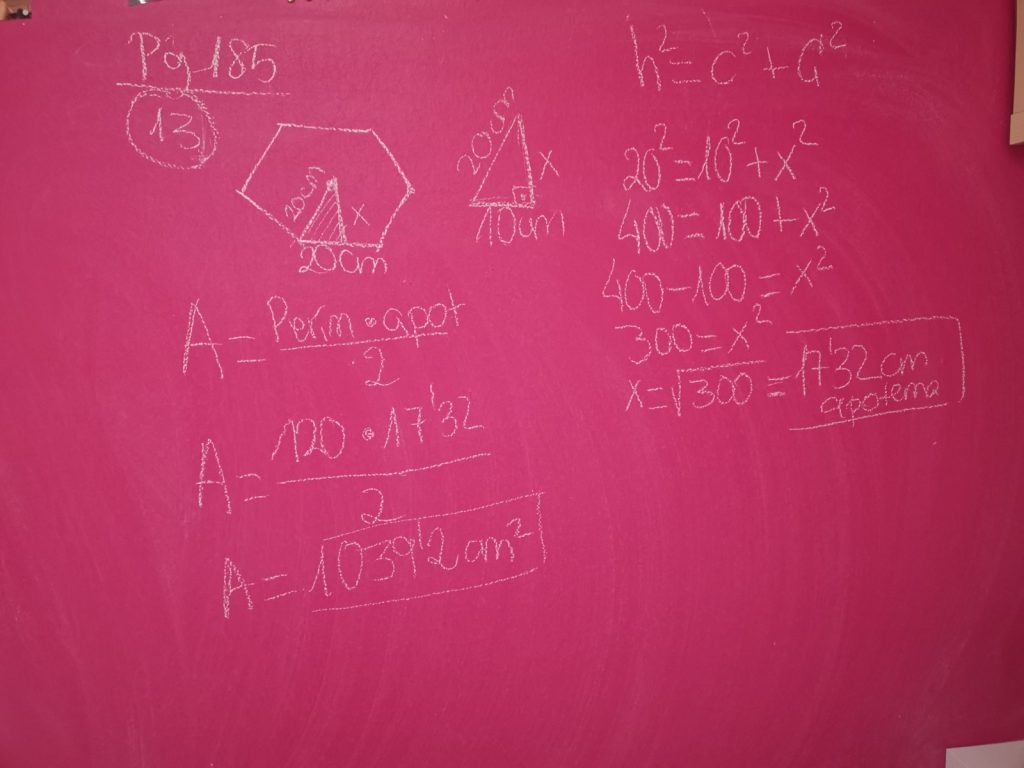 Pg 185
13
20cm
x
20cm
20cm
x
10cm
A = Perim · apot / 2
A = 120 · 17'32 / 2
A = 1039'2 cm²
h² = c² + a²
20² = 10² + x²
400 = 100 + x²
400 - 100 = x²
300 = x²
x = √300 = 17'32 cm
apotema